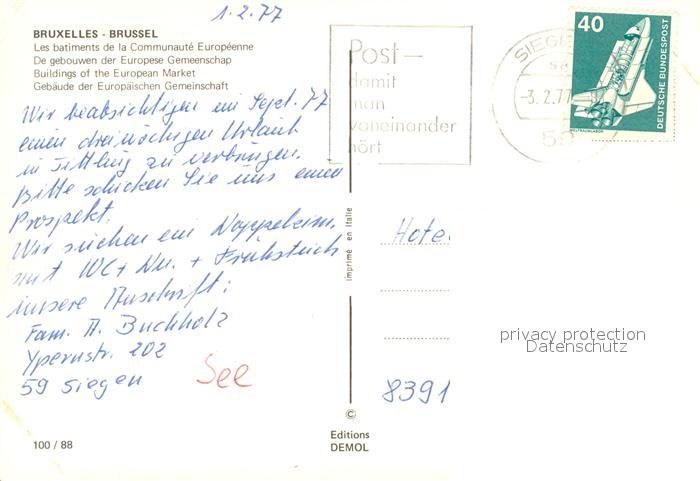 1.2.77
BRUXELLES - BRUSSEL
Les batiments de la Communauté Européenne
De gebouwen der Europese Gemeenschap
Buildings of the European Market
Gebäude der Europäischen Gemeinschaft
Wir beabsichtigen im Sept. 77
einen dreiwöchigen Urlaub
in Tittling zu verbringen.
Bitte schicken Sie uns einen
Prospekt.
Wir suchen ein Doppelzim.
mit WC + Du. + Frühstück
unsere Anschrift:
Fam. A. Buchholz
Ypernstr. 202
59 Siegen
See
100 / 88
Post-
damit
man
voneinander
hört
SIEGE
-3.2.77
59
40
DEUTSCHE BUNDESPOST
WELTRAUMLABOR
imprimé en Italie
Hote
8391
privacy protection
Datenschutz
©
Editions
DEMOL